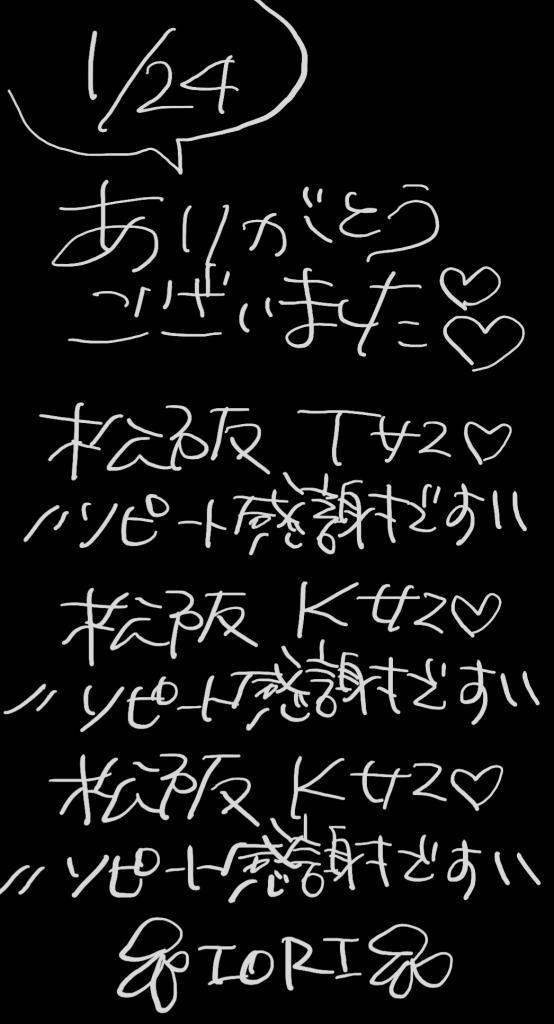 1/24
ありがとう
ございました♡♡
松阪 Tサマ♡
//リピート感謝です\\
松阪 Kサマ♡
//リピート感謝です\\
松阪 Kサマ♡
//リピート感謝です\\
IORI